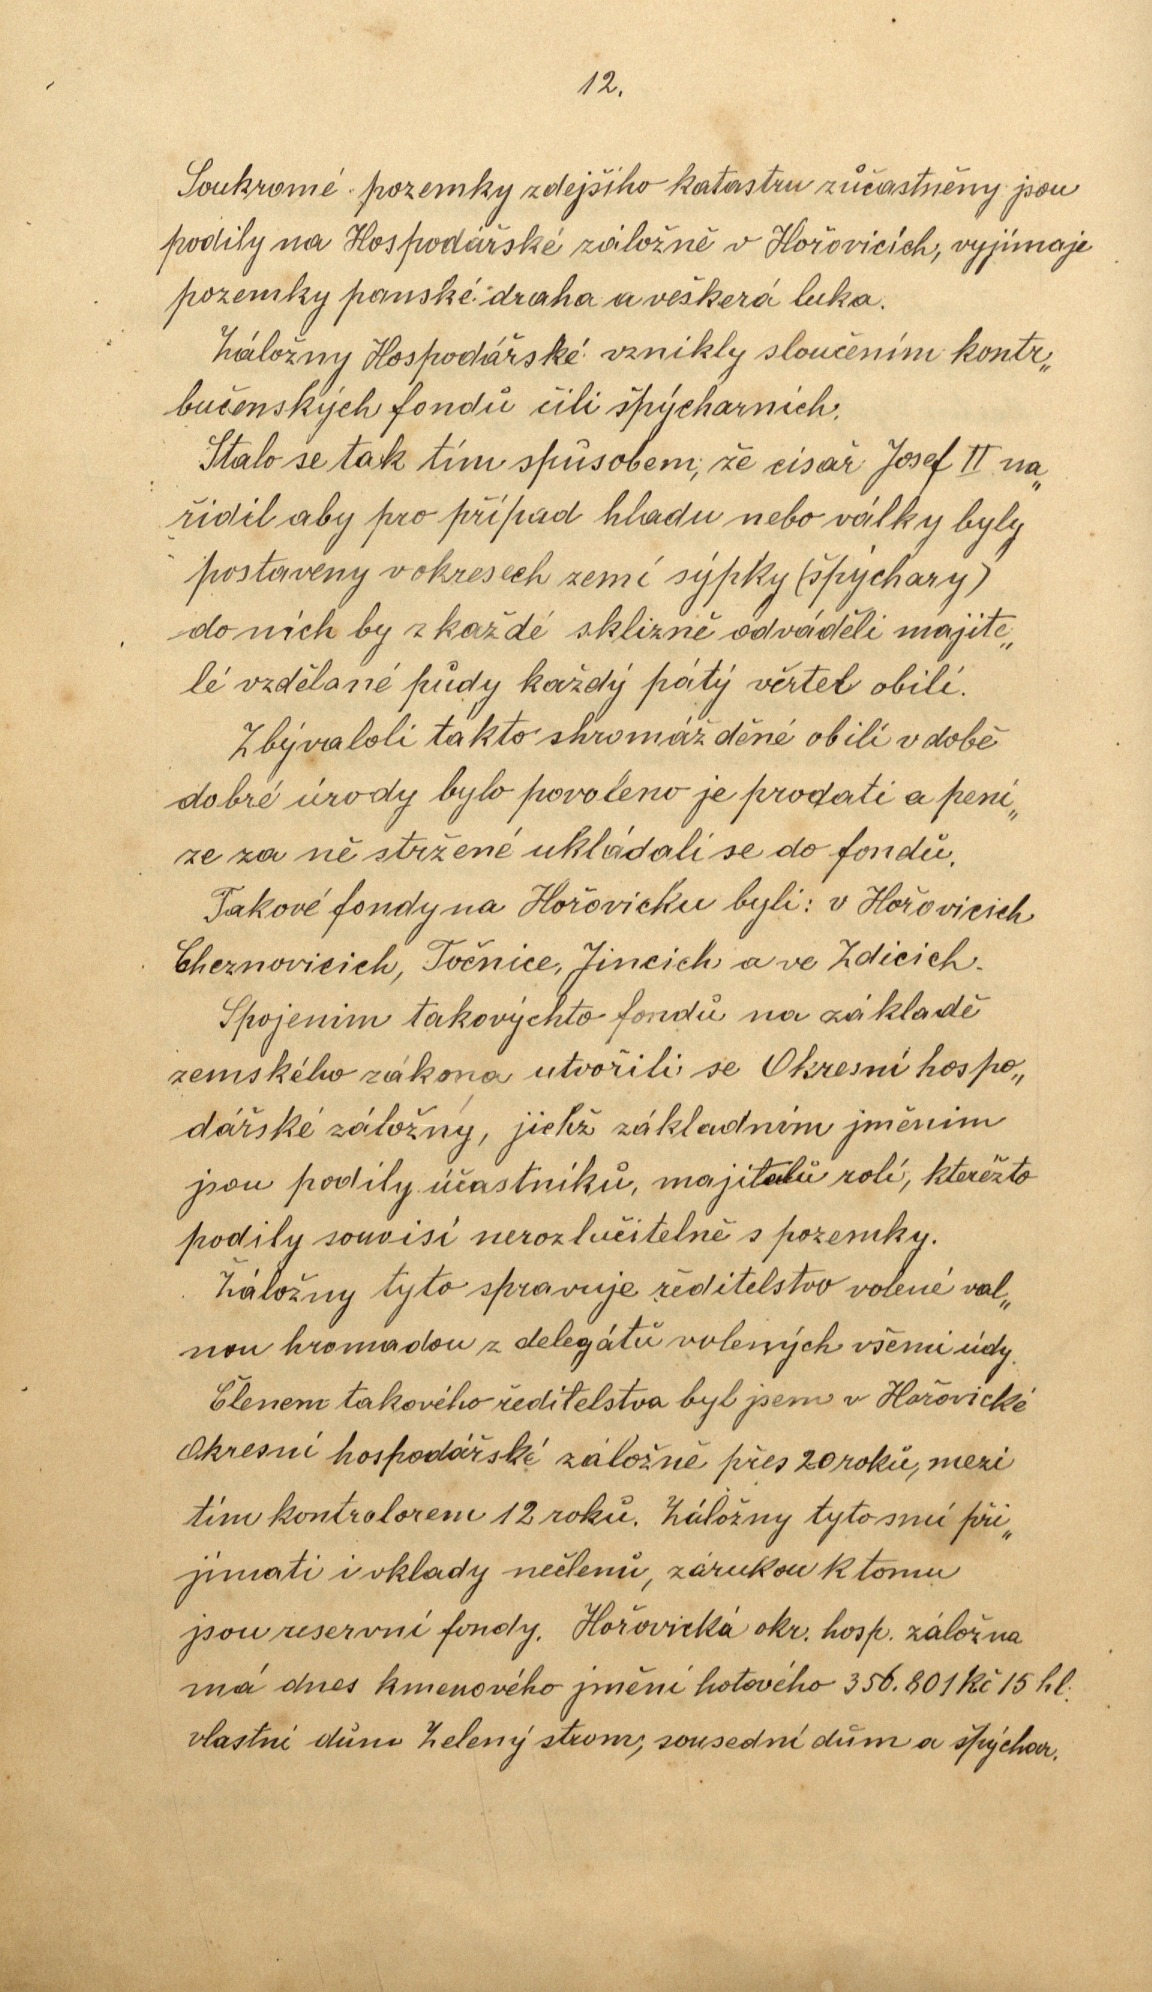 12.
Soukromé pozemky zdejšího katastru zůčastněny jsou
podily na Hospodářské záložně v Hořovicích, vyjímaje
pozemky panské draha a veškerá luka.
Záložny Hospodářské vznikly sloučením kontr„
bučenských fondů čili špýcharních.
Stalo se tak tím spůsobem, že cisař Josef II na„
řidil aby pro případ hladu nebo války byly
postaveny v okresech zemí sýpky (špýchary)
do nich by z každé sklizně odváděli majite„
lé vzdělané půdy každý pátý věrtel obilí.
Zbývaloli takto shromážděné obilí v době
dobré úrody bylo povoleno je prodati a peni„
ze za ně stržené ukládali se do fondů.
Takové fondy na Hořovicku byli: v Hořovicich
Cheznovicich, Točnice, Jincich a ve Zdicich.
Spojenim takovýchto fondů na základě
zemského zákona utvořili se Okresní hospo„
dářské záložny, jichž základním jměnim
jsou podíly účastníků, majitelů rolí, kteréžto
podily souvisí nerozlučitelně s pozemky.
Záložny tyto spravuje ředitelstvo volené val„
nou hromadou z delegátů volených všemi údy.
Členem takového ředitelstva byl jsem v Hořovické
Okresní hospodářské záložně přes 20 roků, mezi
tím kontrolorem 12 roků. Záložny tyto smí při„
jímati i vklady nečlenů, zárukou k tomu
jsou reservní fondy. Hořovická okr. hosp. záložna
má dnes kmenového jmění hotového 356.801 Kč 15 hl.
vlastní dům Zelený strom, sousední dům a špýchar.